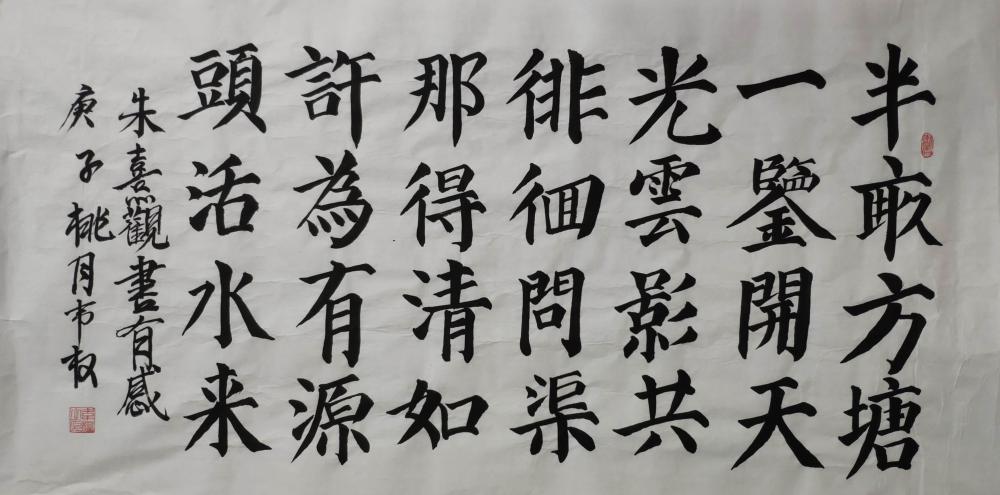 半畝方塘
一鑒開天
光雲影共
徘徊問渠
那得清如
許為有源
頭活水来
朱熹觀書有感
庚子桃月韦权